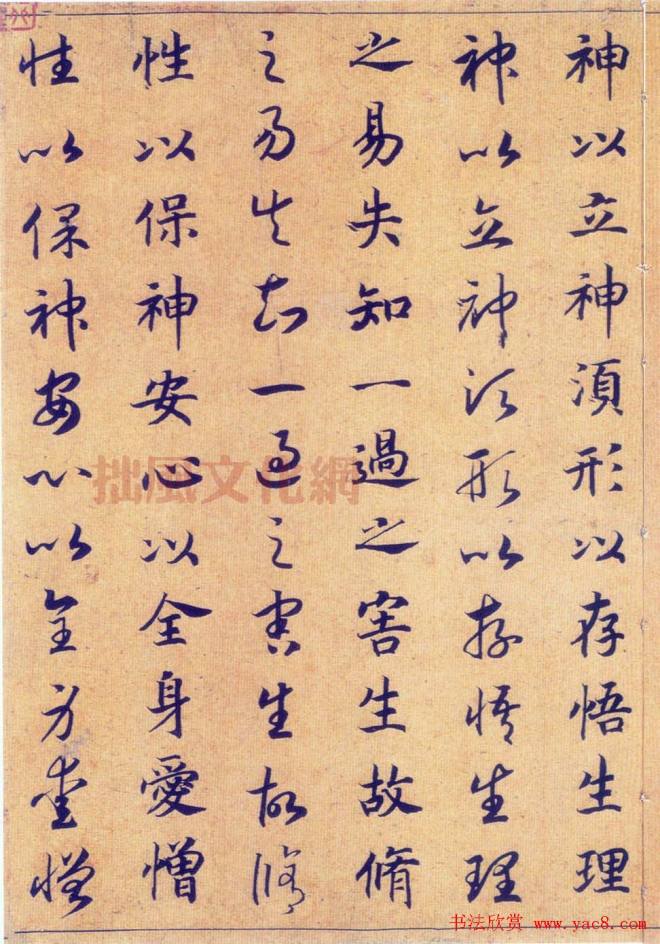 神以立神湏形以存悟生理
神以立神湏形以存悟生理
之易失知一過之害生故脩
之易失知一過之害生故脩
性以保神安心以全身愛憎
性以保神安心以全身愛憎
拙風文化網
书法欣赏 www.yac8.com